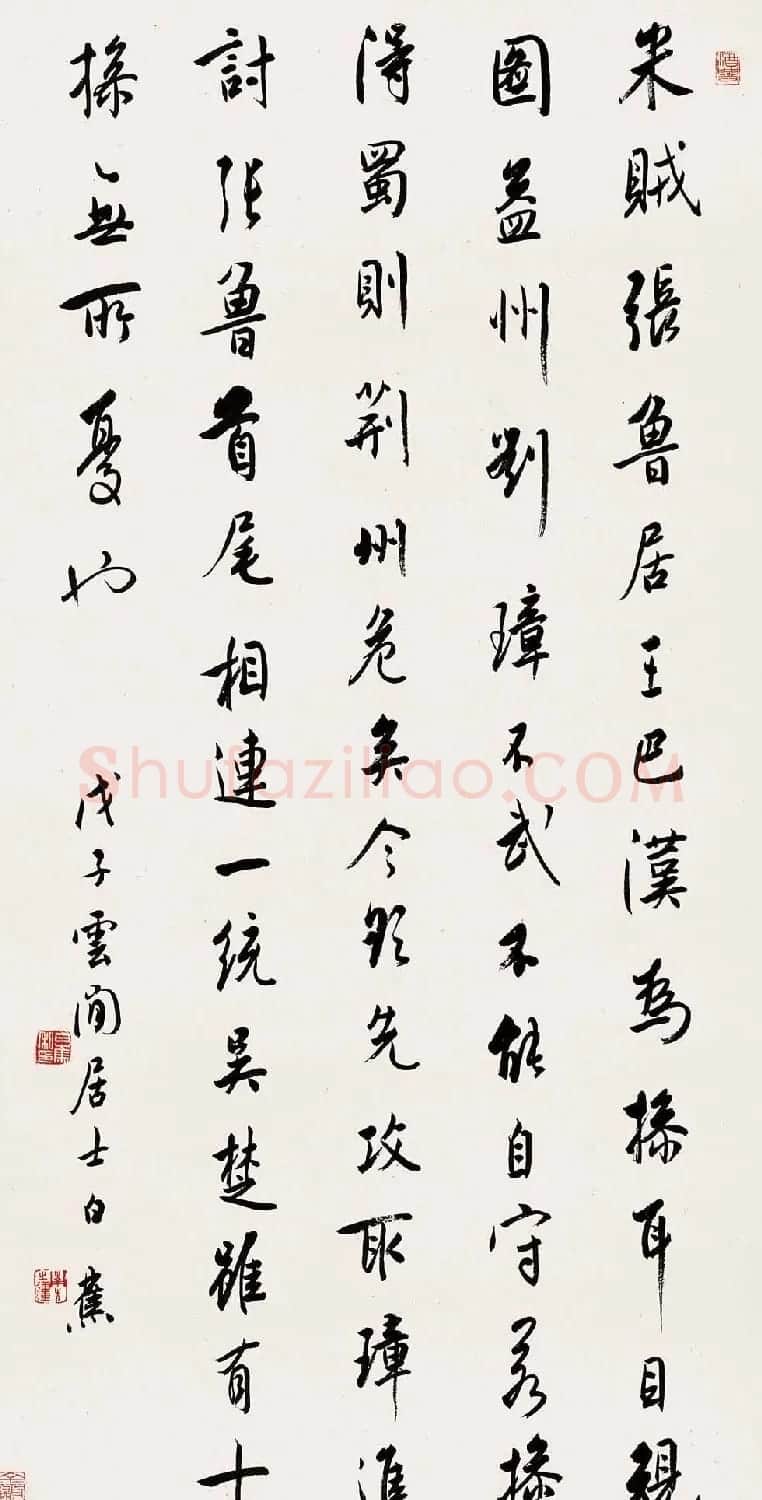 米賊張魯居王巴漢為操耳目規
圖益州劉璋不武不能自守若操
得蜀則荆州危矣今欲先攻取璋進
討張魯首尾相連一統吳楚雖有十
操無所憂也
戊子雲間居士白蕉
Shufaziliao.COM